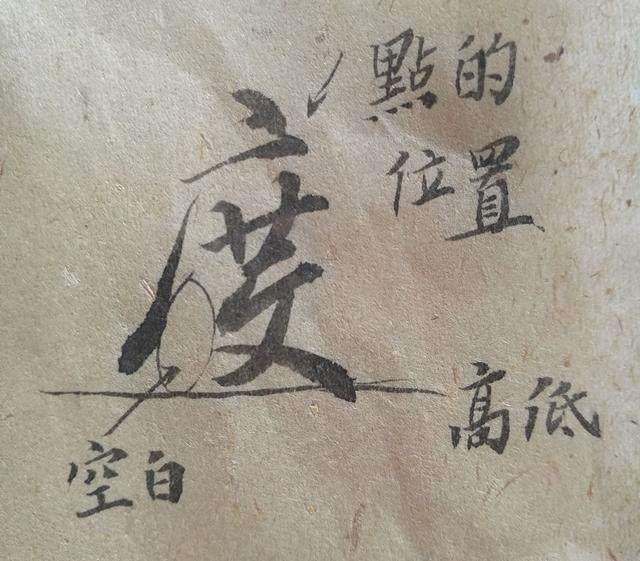 點的
位置
度
高低
空白